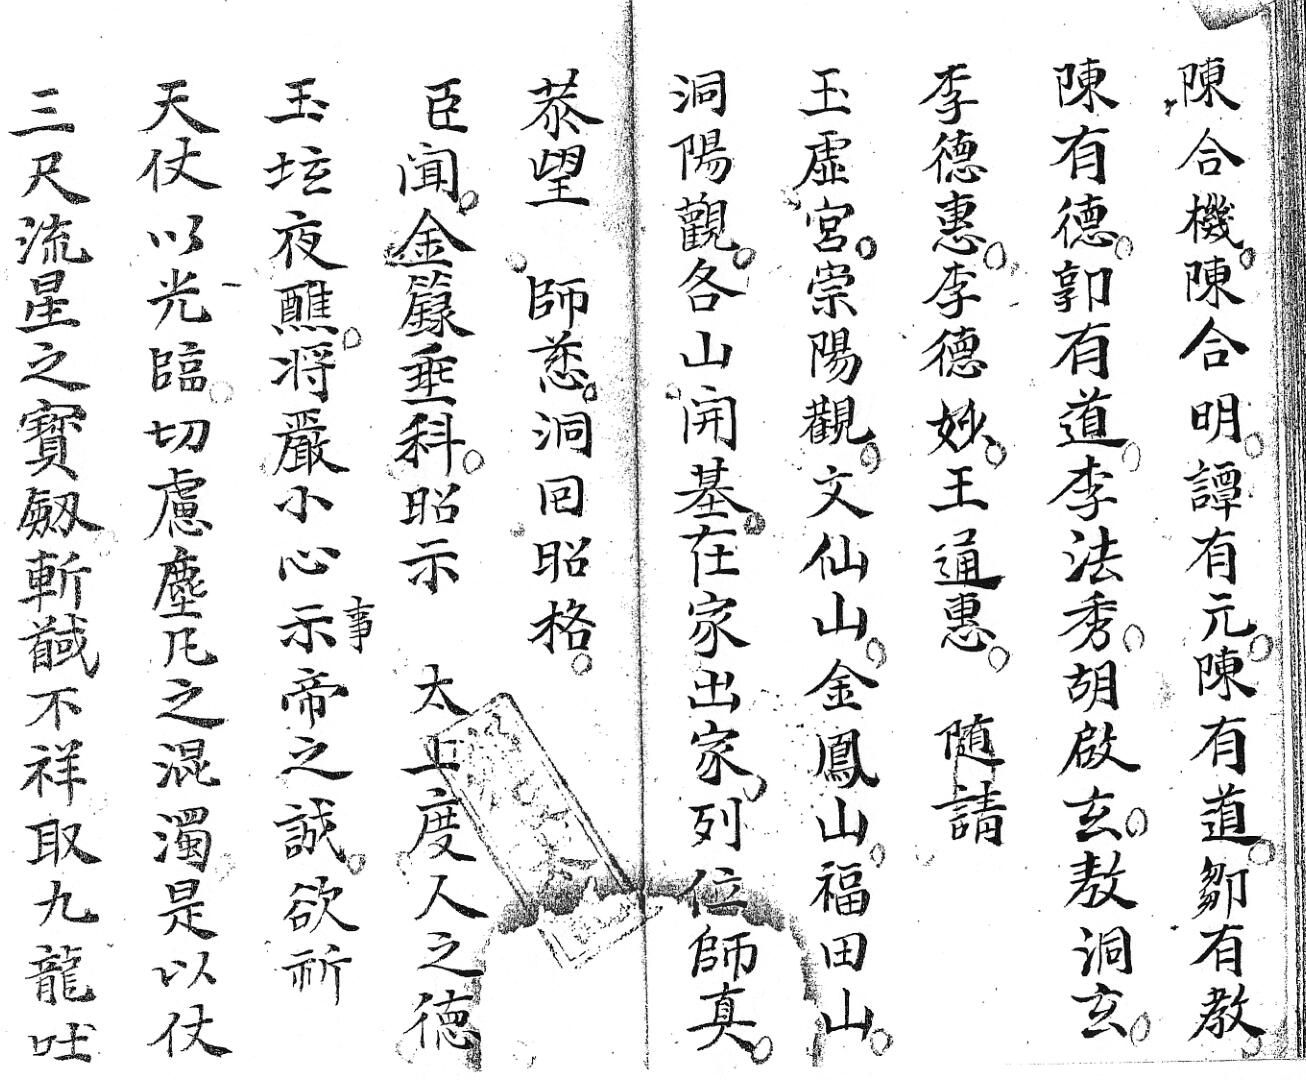 陳合機。陳合明。譚有元。陳有道。鄒有教。
陳有德。郭有道。李法秀。胡啟玄。敖洞玄。
李德惠。李德妙。王通惠。　隨請
玉虛宮。崇陽觀。文仙山。金鳳山。福田山。
洞陽觀。各山開基。在家出家。列位師真。
恭望　師慈。洞回昭格。
臣聞。金籙垂科。昭示　太上度人之德
玉坛夜醮。将嚴小心示帝之誠。欲祈
事
天仗以光臨。切慮塵凡之混濁。是以仗
三尺流星之寶劔斬馘不祥取九龍吐